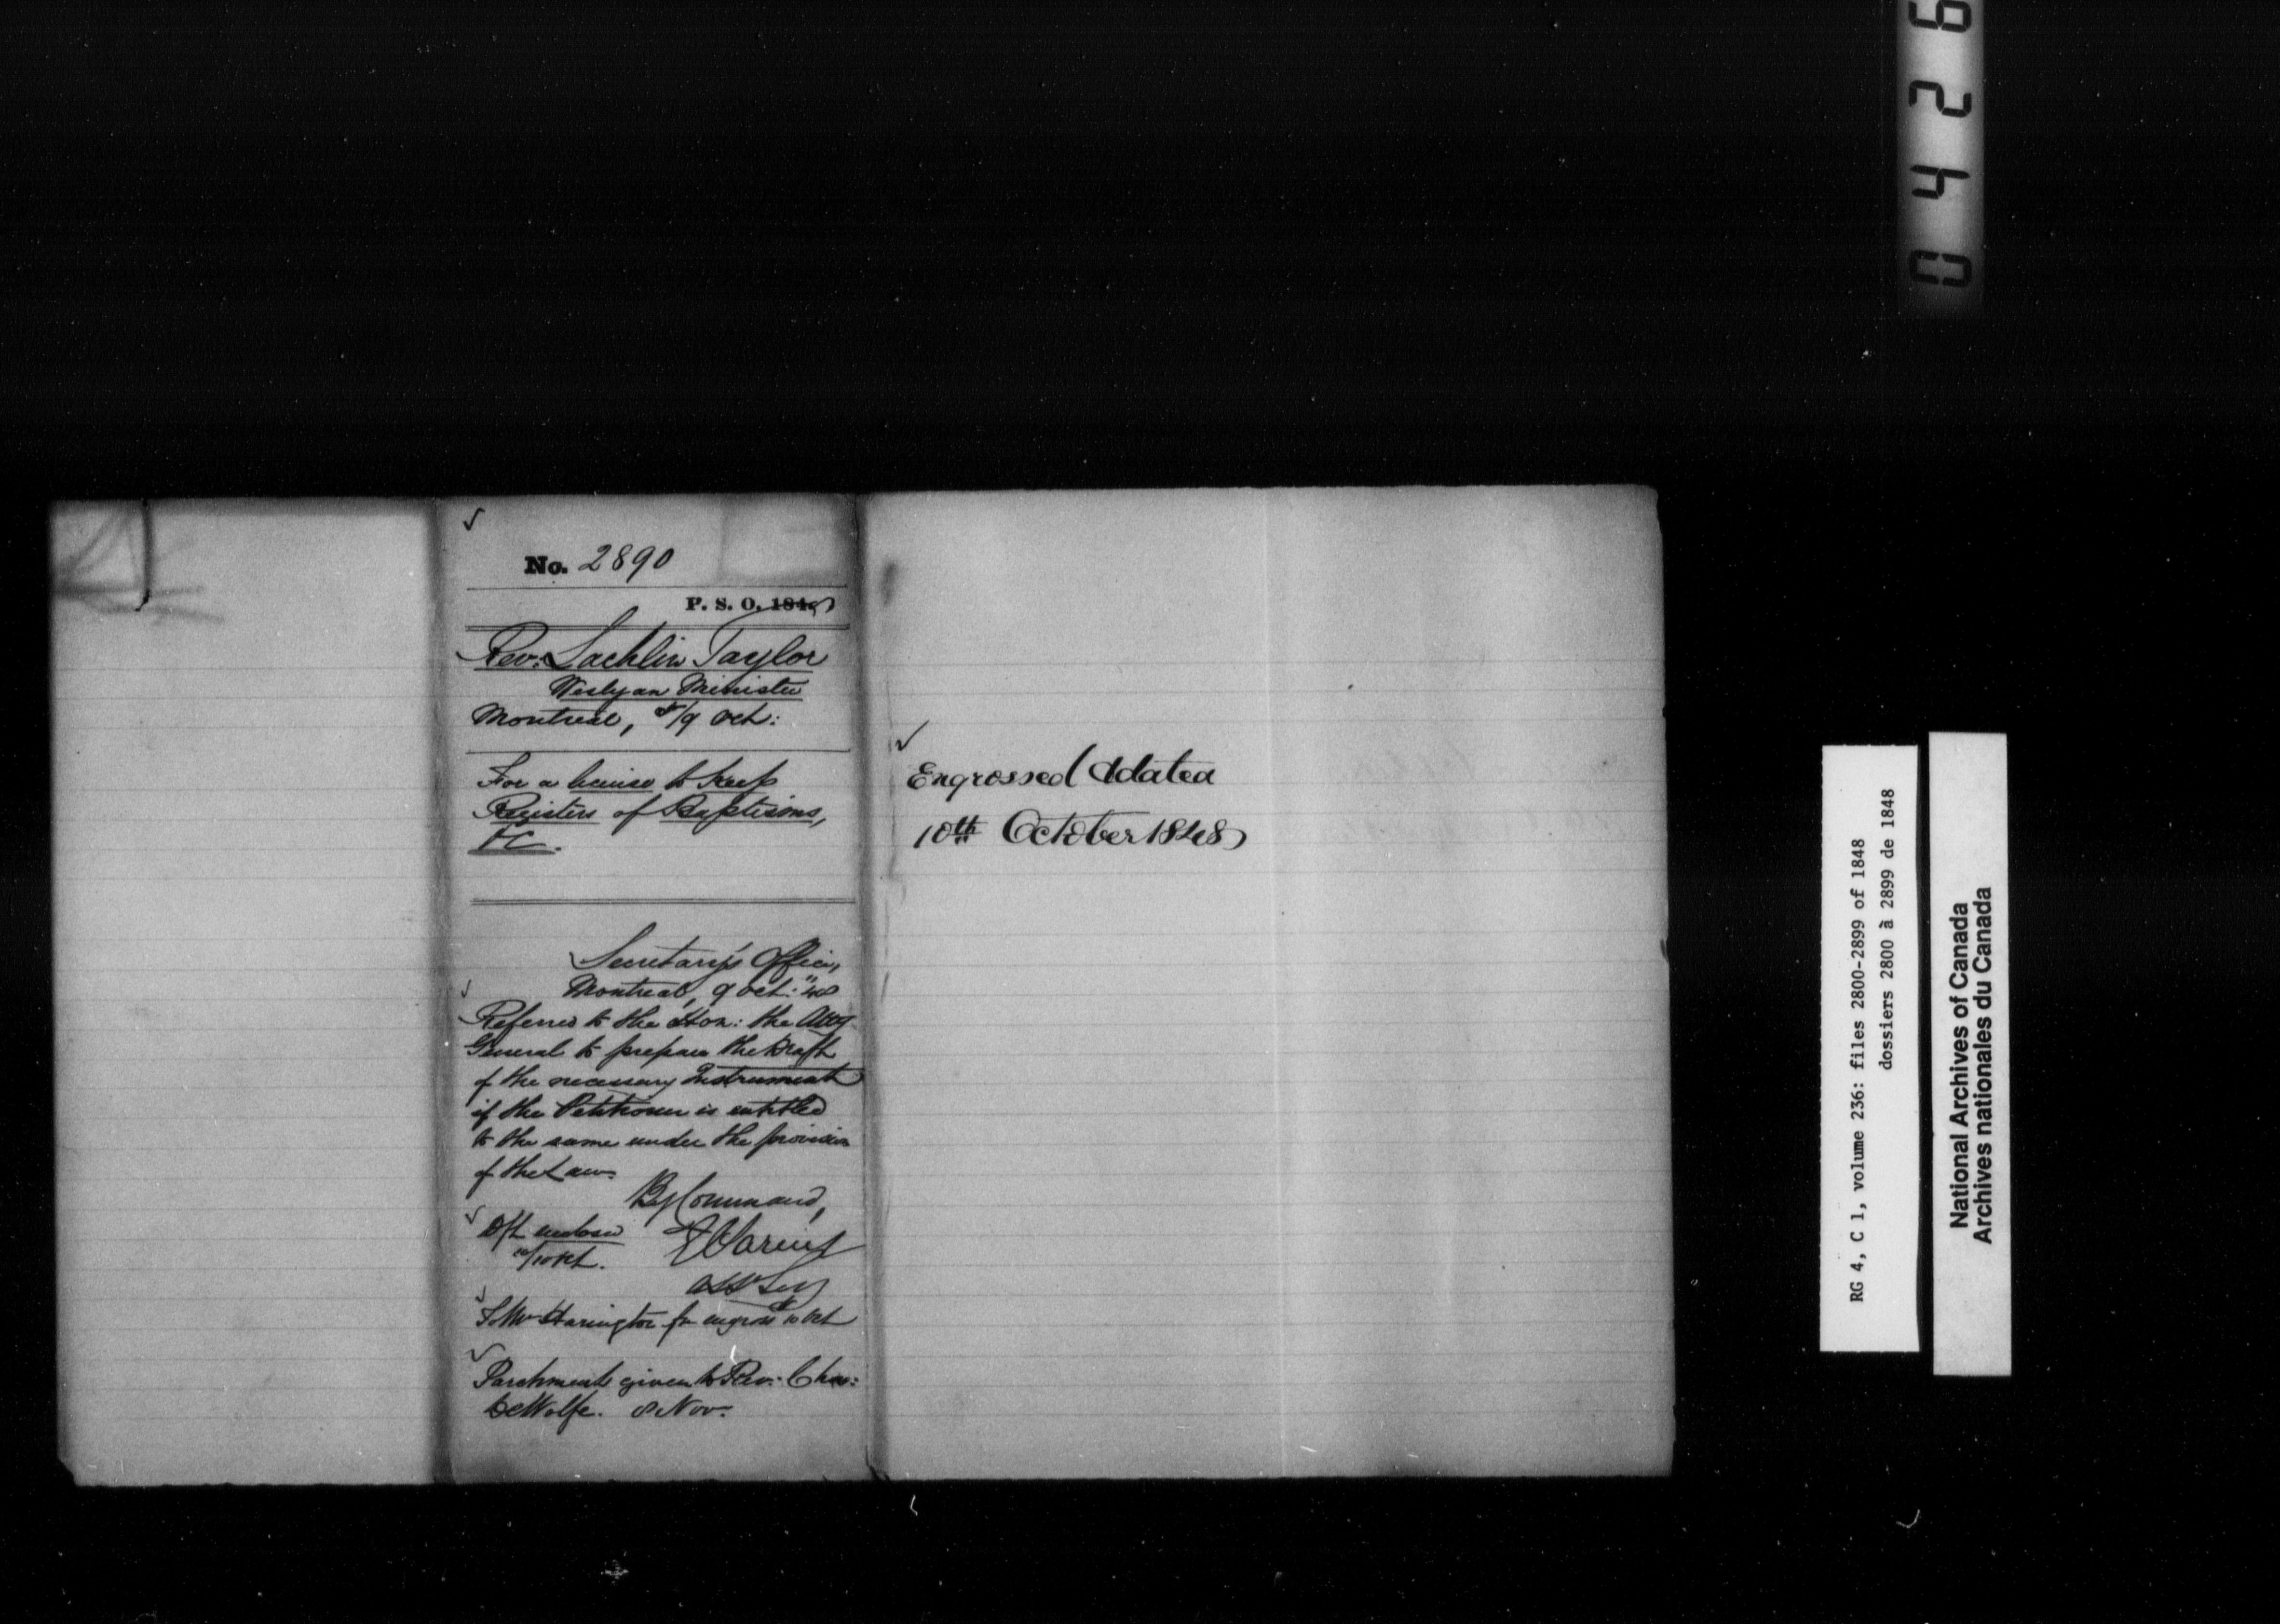 0426
No. 2890
P. S. O. 184
Rev. Lachlin Taylor
Weslyan Minister
Montreal, 8/9 Oct:
For a license to keep
Registers of Baptisms,
&c.
Secretary's Office,
Montreal, 9 Oct: "48
Referred to the Hon: the Atty
General to prepare the Draft
of the necessary Instrument
if the Petitioner is entitled
to the same under the provision
of the Law.
By Command,
Dft enclosed
10/10 Oct.
E Parent
Asst Secy
To Mr Harington for engross 10 Oct
Parchment given to Rev. Chas:
DeWolfe. 8 Nov.
Engrossed & dated
10th October 1848
RG 4, C 1, volume 236: files 2800-2899 of 1848
dossiers 2800 à 2899 de 1848
National Archives of Canada
Archives nationales du Canada